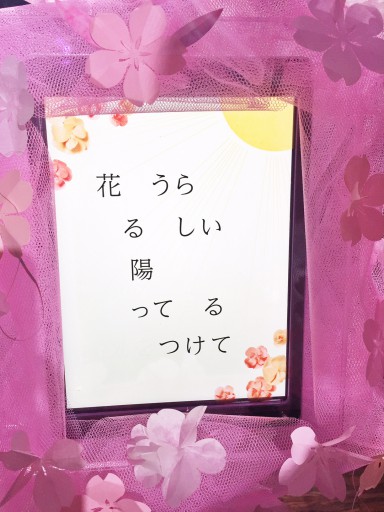 花　うら
る　しい
陽
って　る
つけて